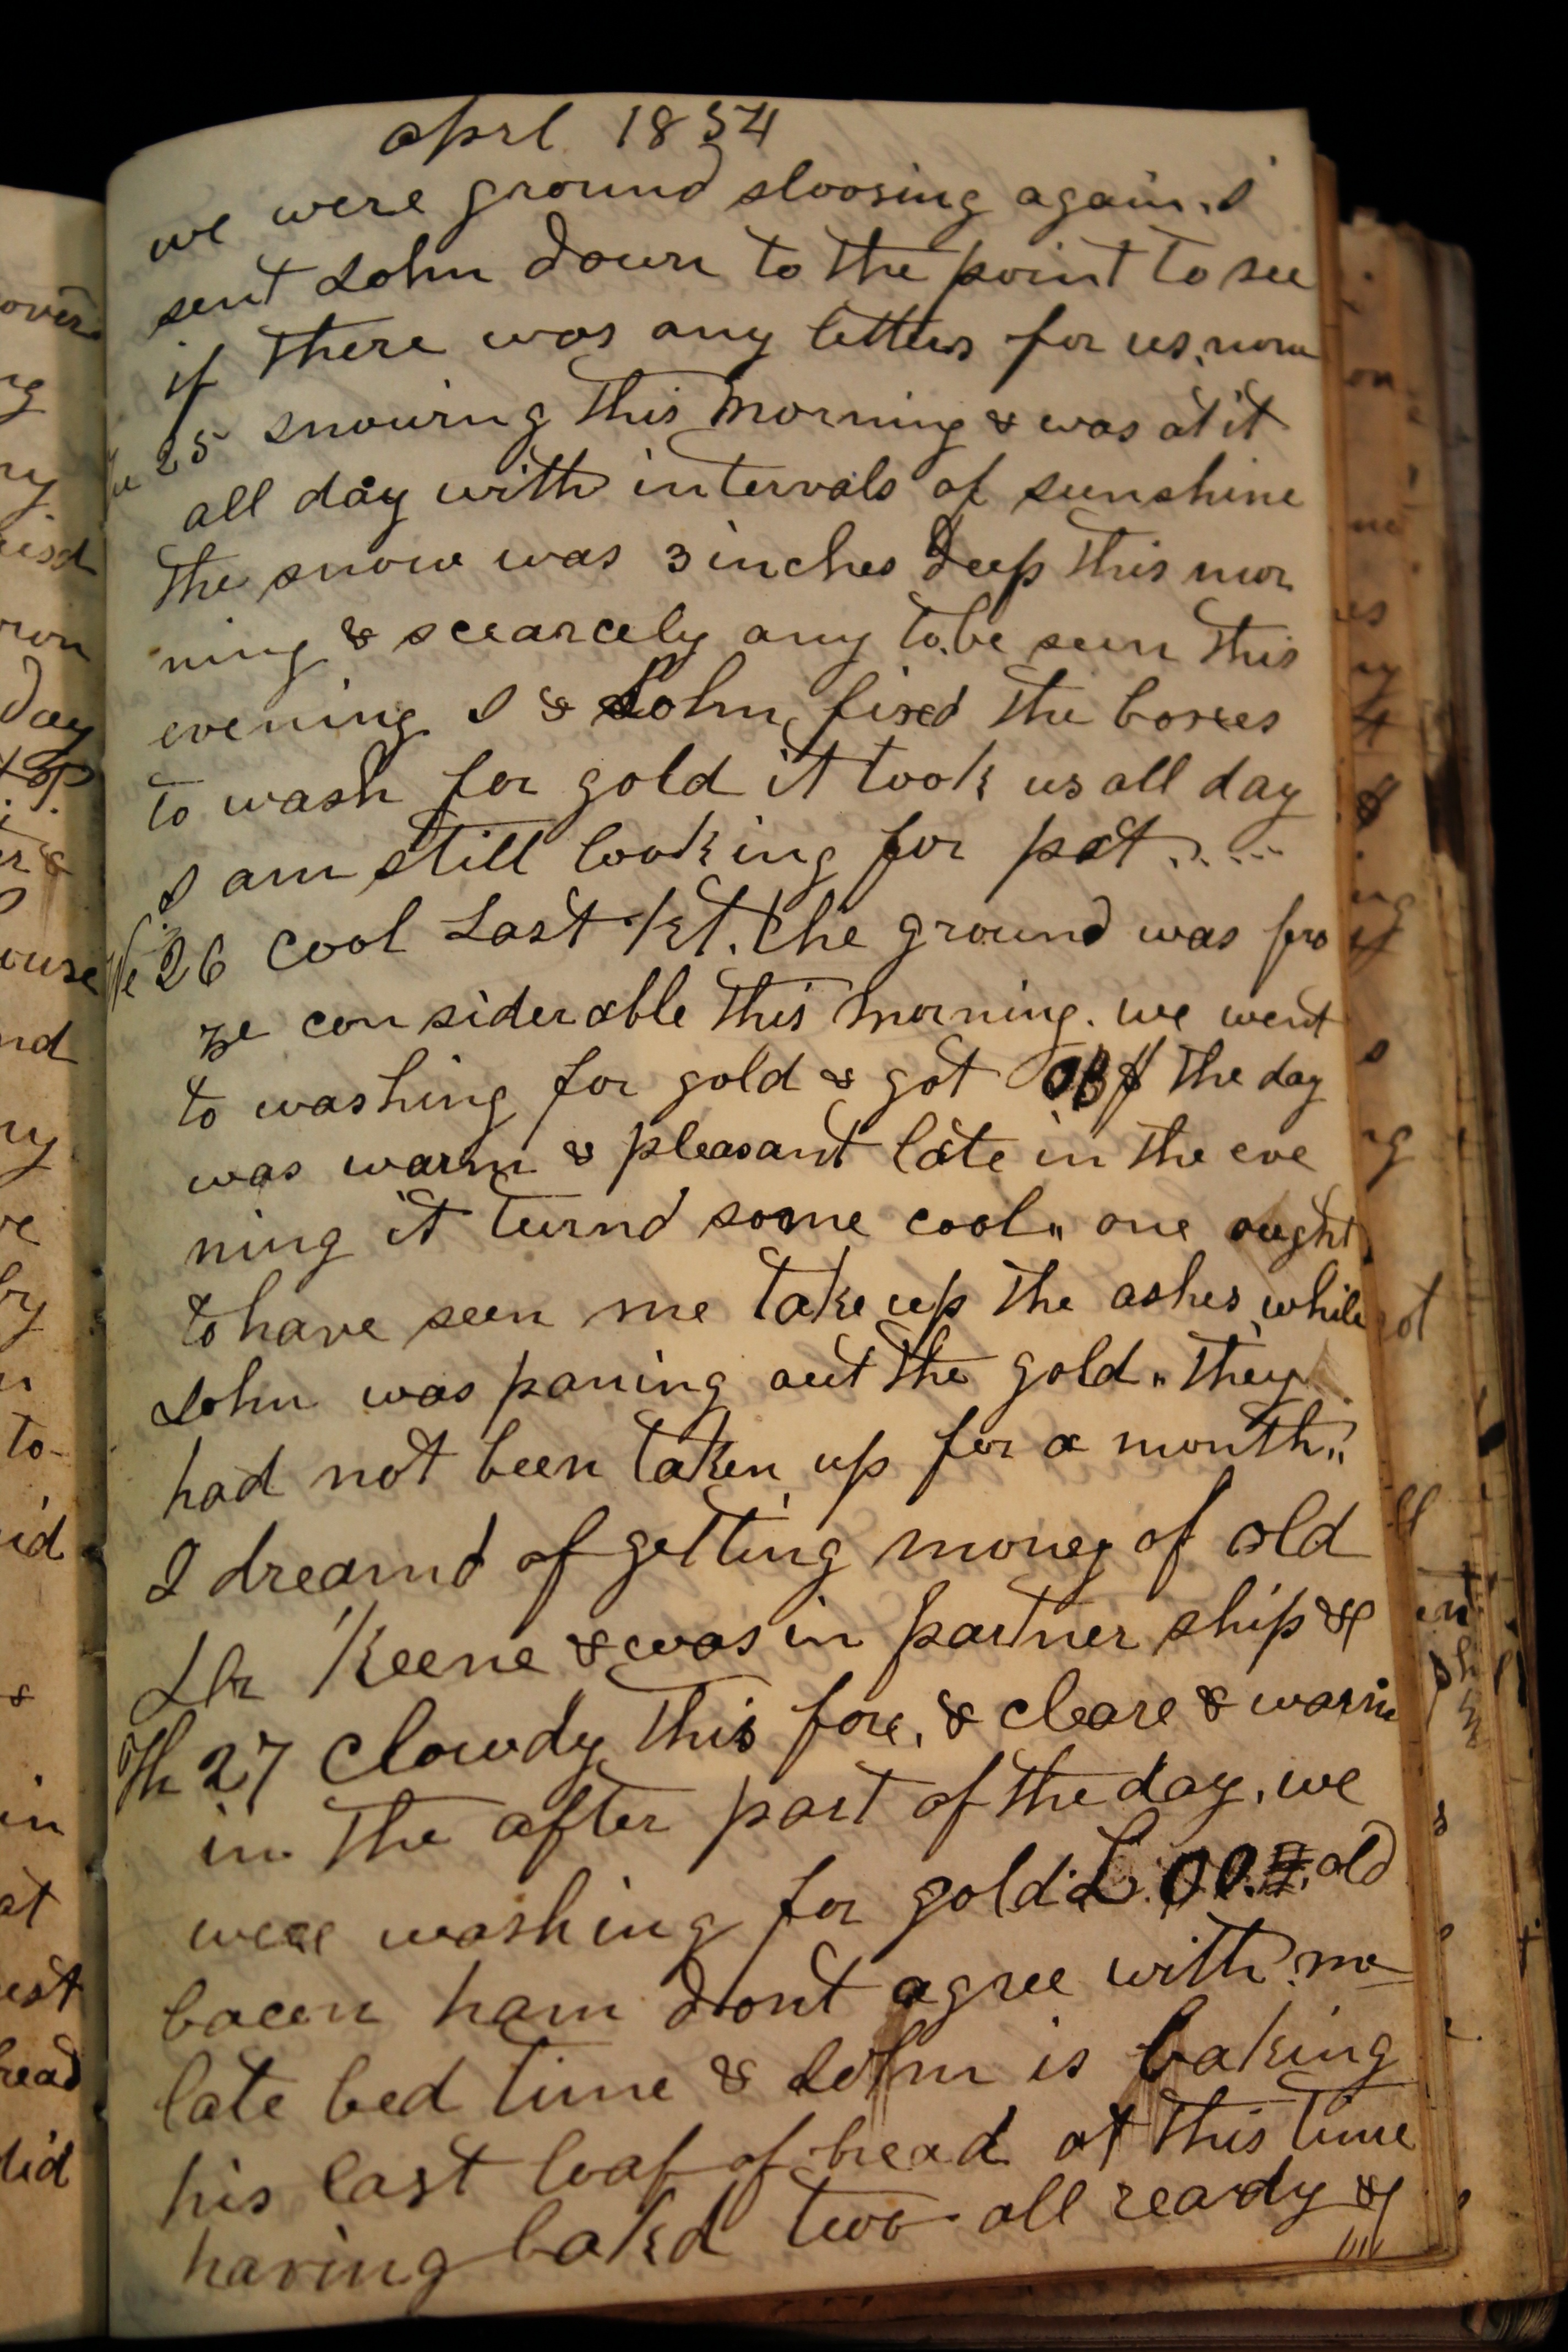 aprl 1854
we were ground sloosing again. I
sent John down to the point to see
if there was any letters for us, none
Tu 25 snowing this morning & was at it
all day with intervals of sunshine
the snow was 3 inches deep this mor
ning & scearcely any to be seen this
evening I & John fixed the boxes
to wash for gold it took us all day
I am still looking for pat.....
We 26 cool Last Nt. the ground was fro
ze considerable this morning. we went
to washing for gold & got the day
was warm & pleasant late in the eve
ning it turnd some cool„ one ought
to have seen me take up the ashes while
John was paning out the gold„ they
had not been taken up for a month„
I dreamd of getting money of old
Keene & was in partner ship &
Th 27 clowdy this fore, & cleare & warm
in the after part of the day, we
were washing for gold old
bacon ham dont agree with me
late bed time & John is baking
his last loaf of bread at this time
having bakd two all ready &
over
ng
ny
day
ouse
nd
ny
ve
by
to
id
&
in
at
est
read
did
on
es
ny
ing
s
ng
ot
ll